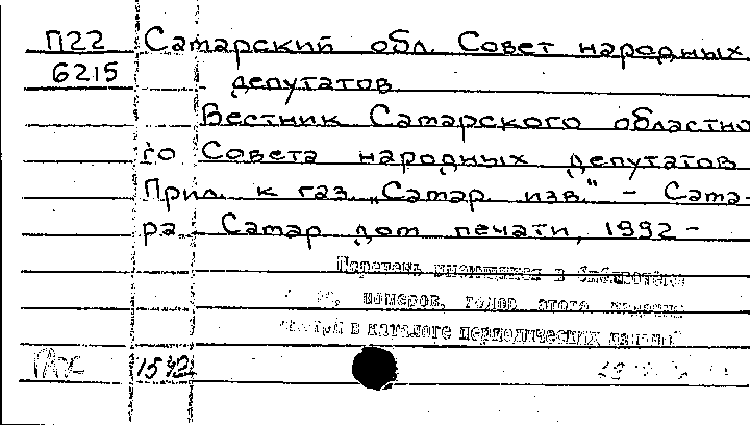 П22 Самарский обл. Совет народных
6215 депутатов
Вестник Самарского областно
го Совета народных депутатов
Прил. к газ. „Самар. изв." – Сама-
ра. Самар дом печати, 1992 –
Перечень имеющихся в библиотеке
номеров, годов этого издания
смотри в каталоге периодических изданий
1592